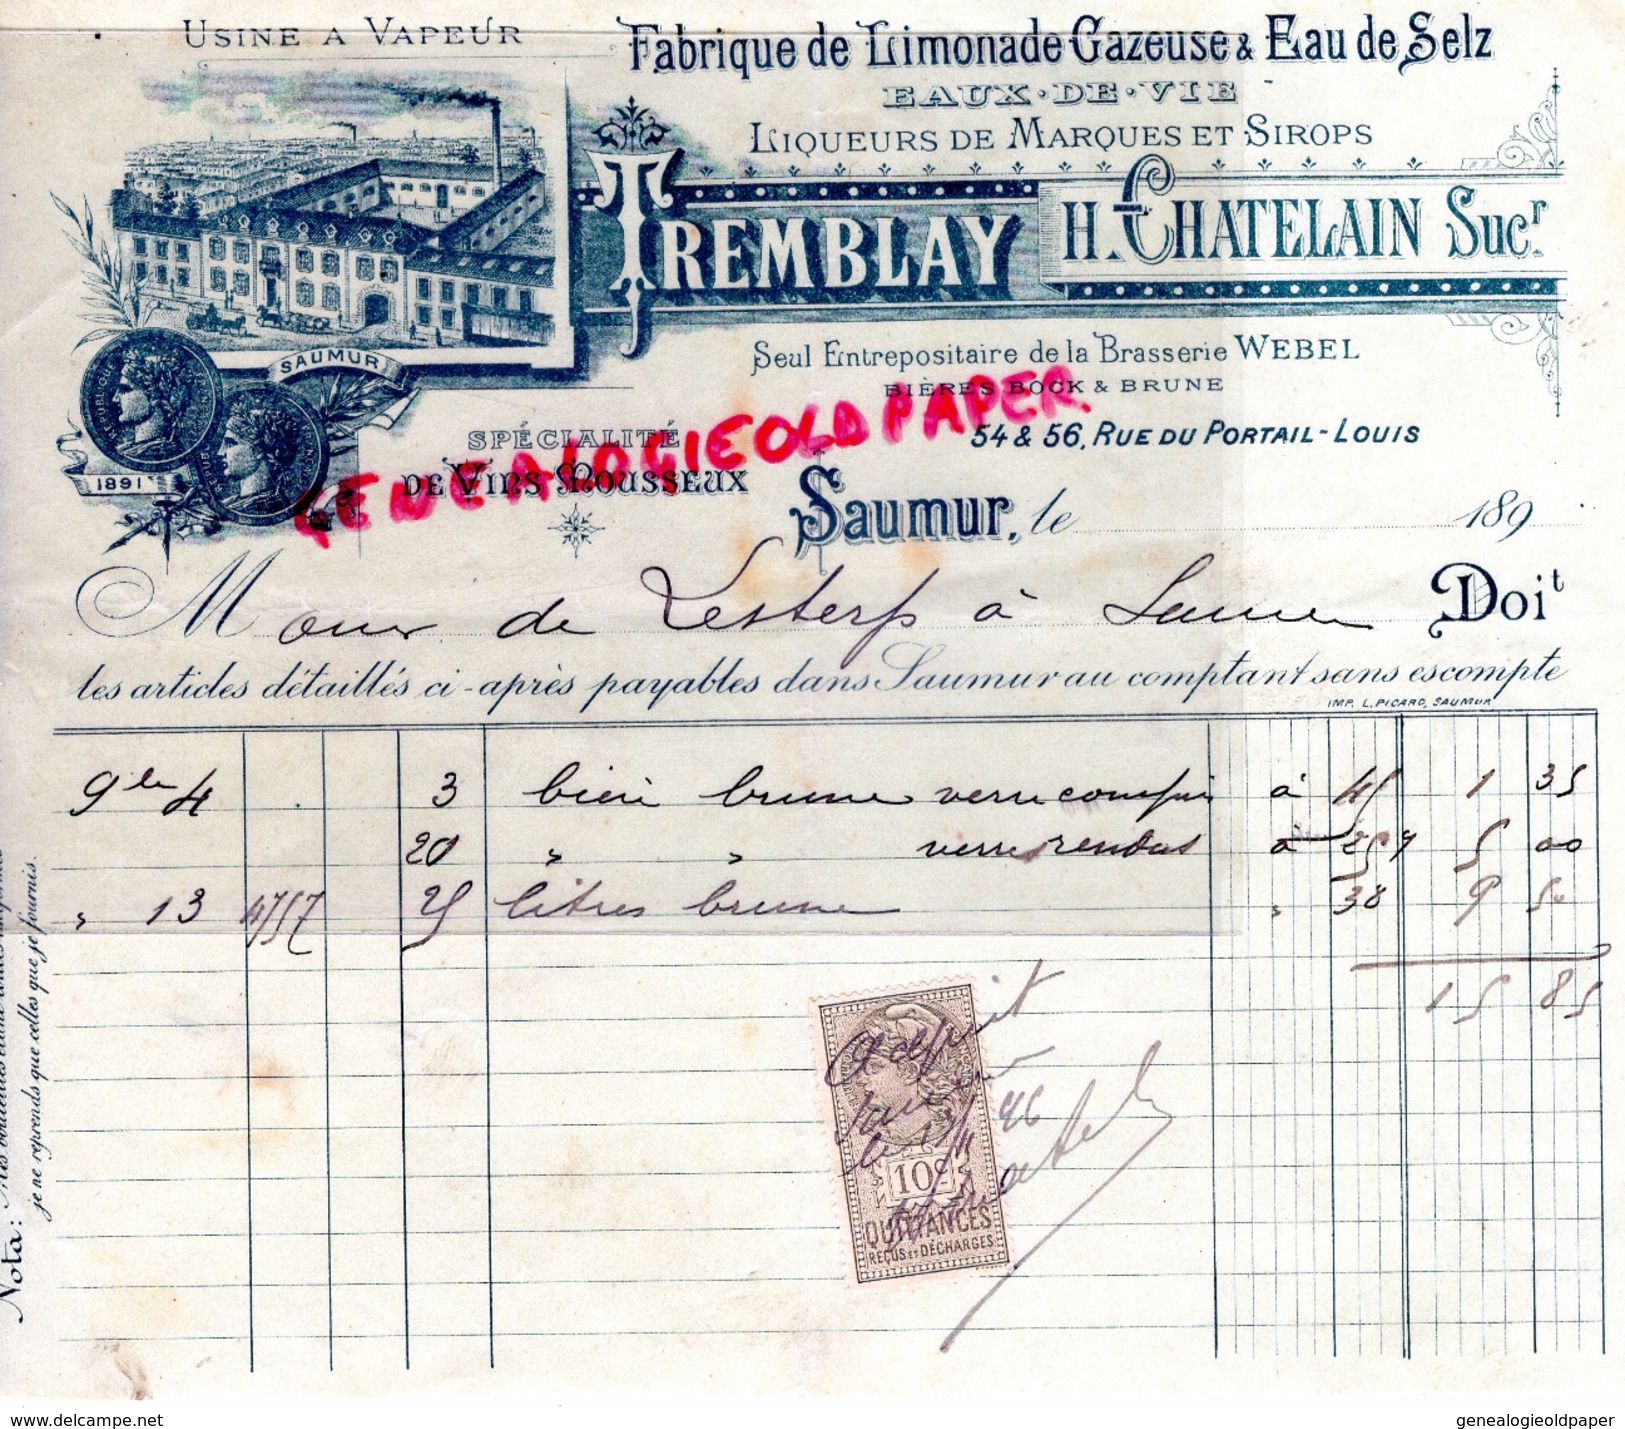 USINE A VAPEUR
Fabrique de Limonade Gazeuse & Eau de Selz
EAUX·DE·VIE
LIQUEURS DE MARQUES ET SIROPS
TREMBLAY H. CHATELAIN Sucr.
SAUMUR
1891
Seul Entrepositaire de la Brasserie WEBEL
BIÈRES BOCK & BRUNE
GENEALOGIEOLD PAPER.
SPÉCIALITÉ
DE VINS MOUSSEUX
54 & 56, RUE DU PORTAIL-LOUIS
Saumur, le 189
M de Lesterps à Saumur Doit
les articles détaillés ci-après payables dans Saumur au comptant sans escompte
IMP. L. PICARD, SAUMUR
9bre 4 3 bière brune verre compris à 45 1 35
20 » » verres rendus à 25 5 00
» 13 4757 25 litres brune » 38 9 50
15 85
Acquit
10c
QUITTANCES
REÇUS ET DÉCHARGES
96
Nota:
je ne reprends que celles que je fournis.
www.delcampe.net
genealogieoldpaper